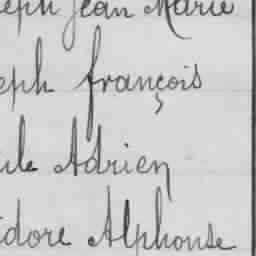 eph Jean Marie
eph françois
ile Adrien
idore Alphonse